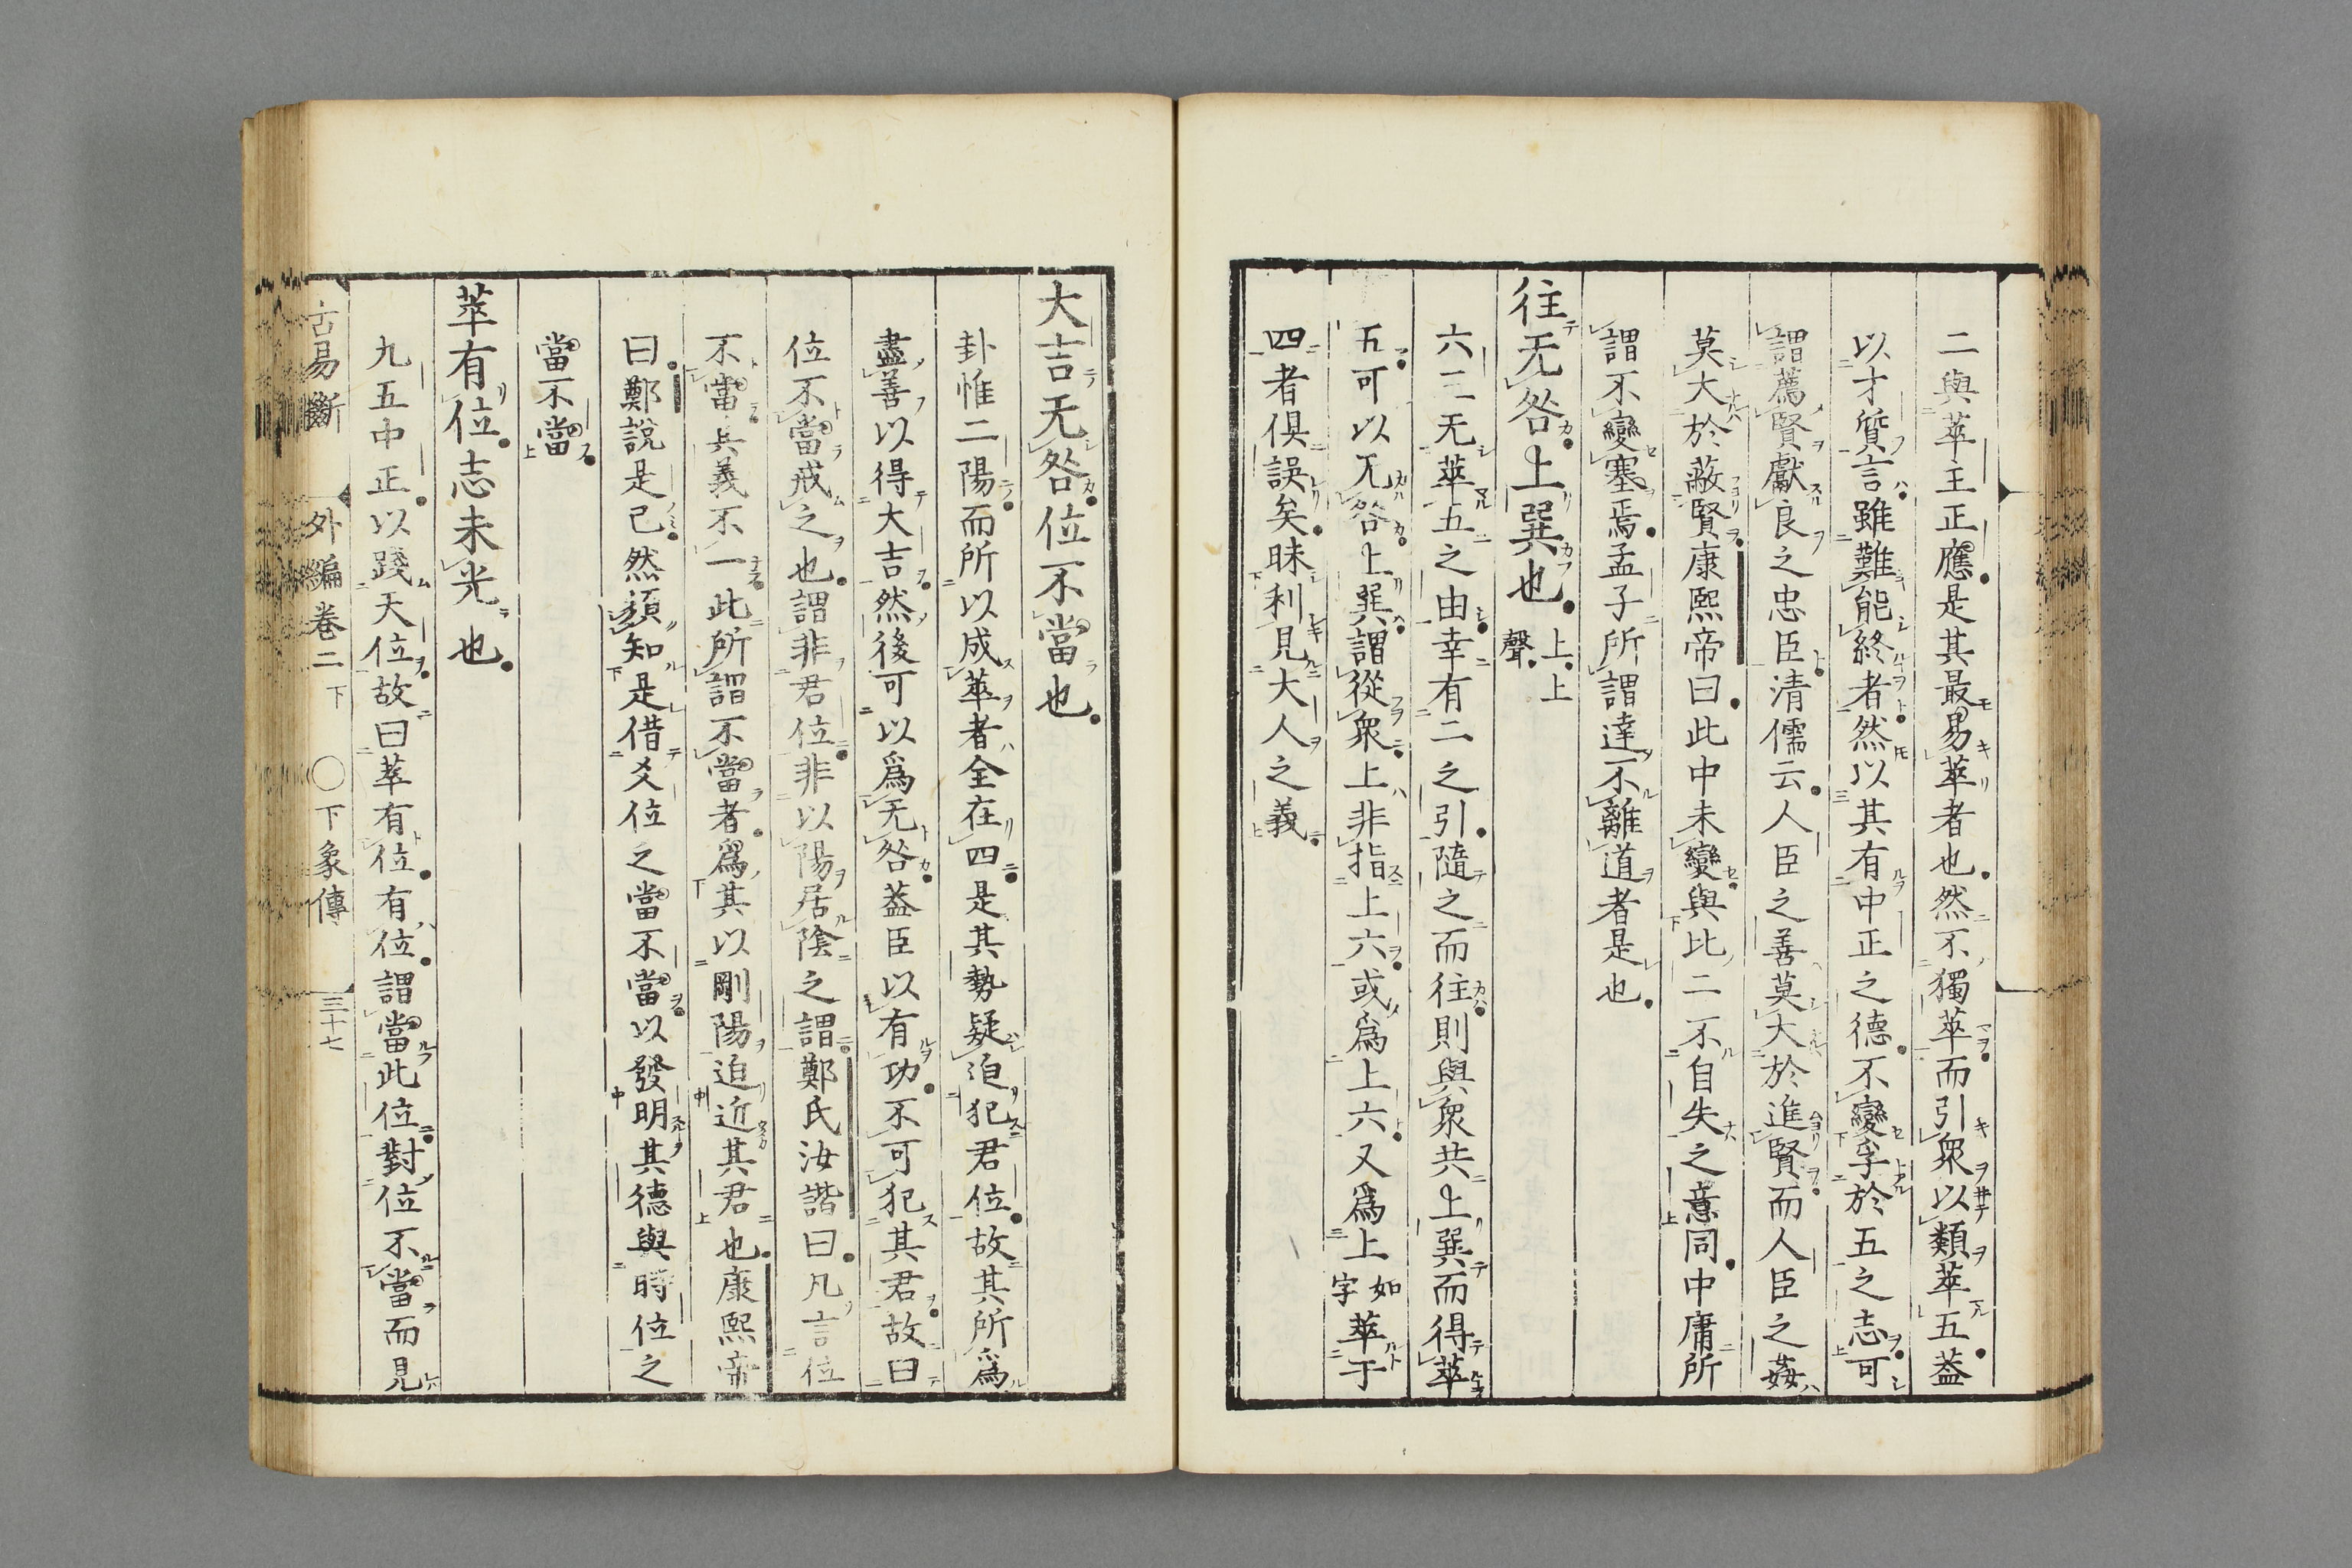 二與萃主正應是其最易萃者也然不獨萃而引衆以類萃五蓋
以才質言雖難能終者然以其有中正之德不變孚於五之志可
謂薦賢獻良之忠臣清儒云人臣之善莫大於進賢而人臣之姦
莫大於蔽賢康熙帝曰此中未變與比二不自失之意同中庸所
謂不變塞焉孟子所謂達不離道者是也
往无咎上巽也上上聲
六三无萃五之由幸有二之引隨之而往則與衆共上巽而得萃
五可以无咎上巽謂從衆上非指上六或爲上六又爲上如字萃于
四者倶誤矣昧利見大人之義
大吉无咎位不當也
卦惟二陽而所以成萃者全在四是其勢疑迫犯君位故其所爲
盡善以得大吉然後可以爲无咎蓋臣以有功不可犯其君故曰
位不當戒之也謂非君位非以陽居陰之謂鄭氏汝諧曰凡言位
不當其義不一此所謂不當者爲其以剛陽迫近其君也康熙帝
曰鄭說是已然須知是借爻位之當不當以發明其德與時位之
當不當
萃有位志未光也
九五中正以踐天位故曰萃有位有位謂當此位對位不當而見
古易斷 外編卷二下 ○下象傳 三十七